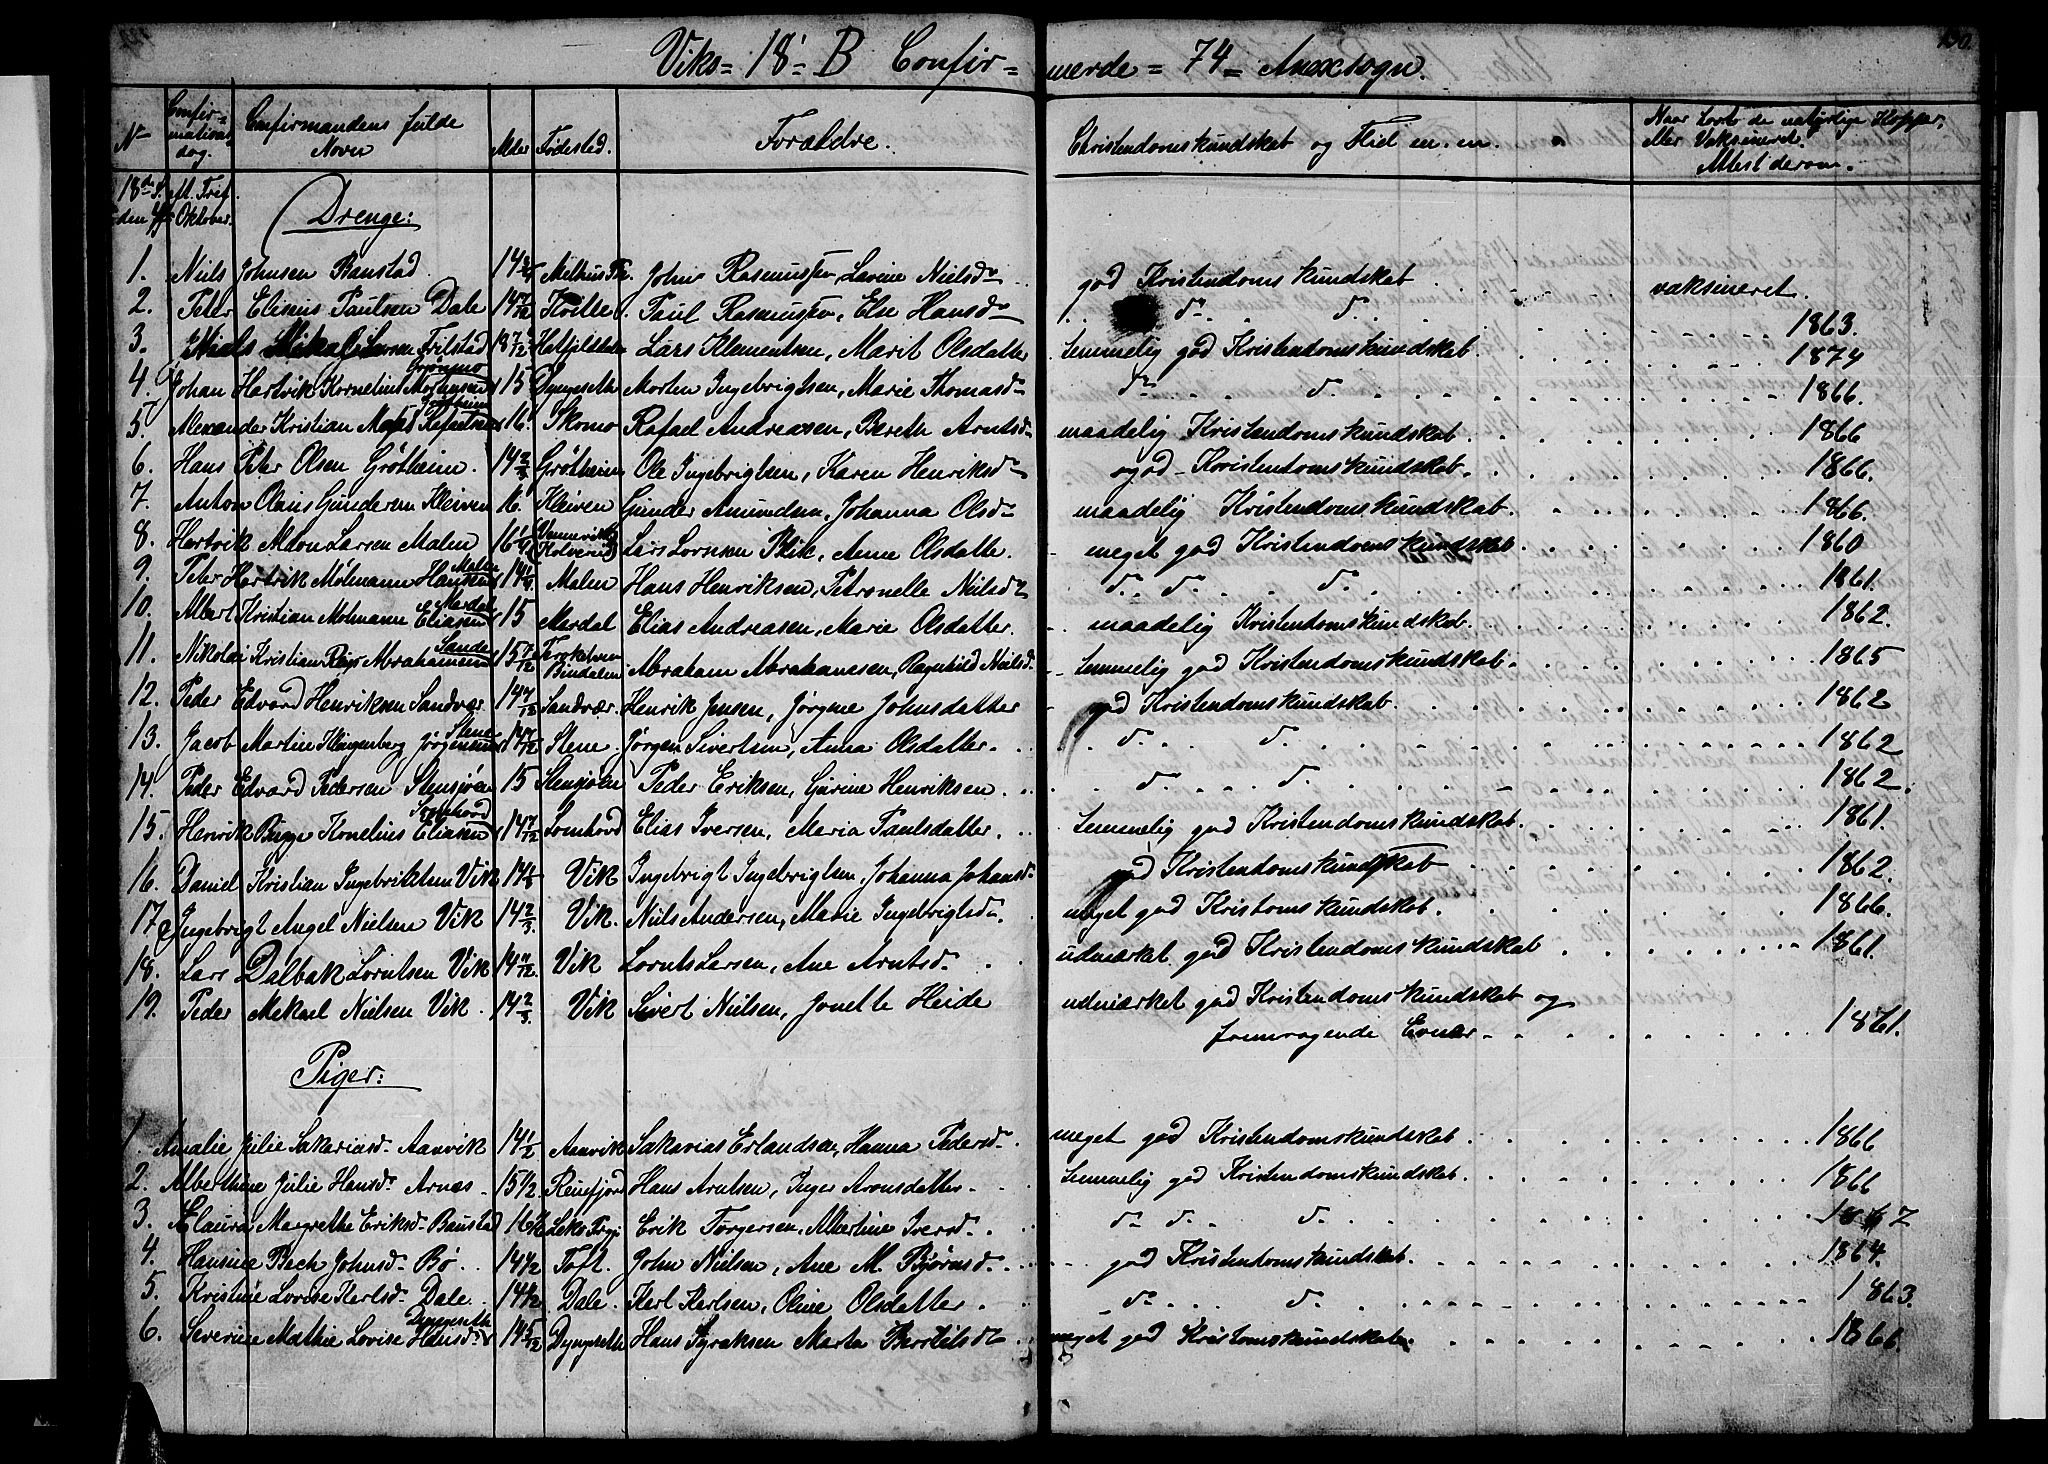 Viks = 18 - B Confir = merde = 74 = Anexsogn.
No Confirmations dag. Confirmandens fulde Navn Alder Fødested. Forældre. Christendomskundskab og Flid en. en. Naar havt de natyrlige Kopper, eller Vaksinerd. Attest derom.
18de S. Ef. Trif. den Oktober.
Drenge:
1. Niels Johnsen Banstad 14 John Rasmussen, Lovine Nielsd. god Kristendomskundskab vaksineret.
2. Peter Elisæus Paulsen Dale 14 7/12 Paul Rasmussen, Else Hansd. do. do. 1863.
3. Niels Mikal Larsen 18 7/12 Lars Klementsen, Marit Olsdatter temmelig god Kristendomskundskab 1874
4. Johan Hartvik Kornelius Mortensen Grønmo 15 Dyngseth Morten Ingebrigtsen, Marie Thomasd. do. do. 1866.
5. Alexander Kristian Rafaelsen Grøtheim 16. Skomo Rafael Andreasen, Bereth Arntsd. maadelig Kristendomskundskab. 1866
6. Hans Peter Olsen Grøtheim. 14 2/3 Grøtheim Ole Ingebrigtsen, Karen Henriksd. god Kristendomskundskab. 1866.
7. Anton Olaus Gundersen Kleiven 16. Kleiven Gunder Amundsen, Johanna Olsd. maadelig Kristendomskundskab. 1866.
8. Hartvik Larsen Malm 16 Vennevik Kolvereid Lars Lorntsen, Anne Olsdatter. meget god Kristendomskundskab. 1860
9. Peter Hartvik Molmann Hansen Malm 14 Malm Hans Henriksen, Petronelle Nielsd. do. do. do. 1861.
10. Albert Kristian Molmann Eliasen Mardal 15 Mardal Elias Andreasen, Marie Olsdatter. maadelig Kristendomskundskab. 1862.
11. Nikolai Kristian Abrahamsen Sande 15 7/12 Terskelven Bindalen Abraham Abrahamsen, Ragnhild Nielsd. temmelig god Kristendomskundskab. 1865
12. Peder Edvard Henriksen Sandvær. 14 Sandvær. Henrik Jensen, Jørgine Johnsdatter god Kristendomskundskab 1862
13. Jacob Martin Klingenberg Jørgensen Stene 14 Stene Jørgen Sivertsen, Anna Olsdatter. do. do. 1862
14. Peder Edvard Pedersen Stensjøen 15 Stensjøen Peder Eriksen, Gurine Henriksen. do. do. 1862.
15. Henrik Bugge Konelius Eliasen Somhovd 14 7/12 Somhovd Elias Iversen, Maria Paulsdatter. temmelig god Kristendomskundskab. 1861.
16. Daniel Kristian Ingebriktsen Vik 14 Vik Ingebrigt Ingebrigtsen, Johanna Johansd. god Kristendomskundskab 1862.
17. Ingebrigt Angel Nielsen Vik 14 2/3. Vik. Niels Andersen, Marie Ingebrigtsd. meget god Kristomskundskab. 1866.
18. Lars Dalbak Lorntsen Vik 14 Vik Lornts Larsen, Ane Arntsd. udmærket god Kristendomskundskab 1861.
19. Peder Mekael Nielsen Vik. 14 2/3. Vik Sivert Nielsen, Jonette Heide udmærket god Kristendomskundskab og
fremragende Evner. 1861.
Piger:
1. Amalie Julie Sakariasd. Aanvik 14 1/2 Aanvik Sakarias Erlandsen, Hanna Pedersd. meget god Kristendomskundskab 1866
2. Alberthine Julie Hansd. Arnæs 15 1/2 Hans Arntsen, Inger Aronsdatter. temmelig god Kristendomskundskab. 1866
3. Laura Margrethe Eriksd. Banstad 16 Erik Torgersen, Albertine Iversd. do. do. do.
4. Hansine Bech Johnsd. Bø. 14 1/2 Toft. John Nielsen, Ane M. Bjørnsd. god Kristendomskundskab. 1864.
5. Kristine Lovise Karlsd. Dale. 14 1/2 Dale. Karl Karlsen, Oline Olsdatter. do. do. 1863.
6. Severine Mathie Lovise Hansd. Dyngseth 14 5/12 Dyngseth Hans Syraksen Marta Bertelsd. meget god Kristomskundskab. 1866.